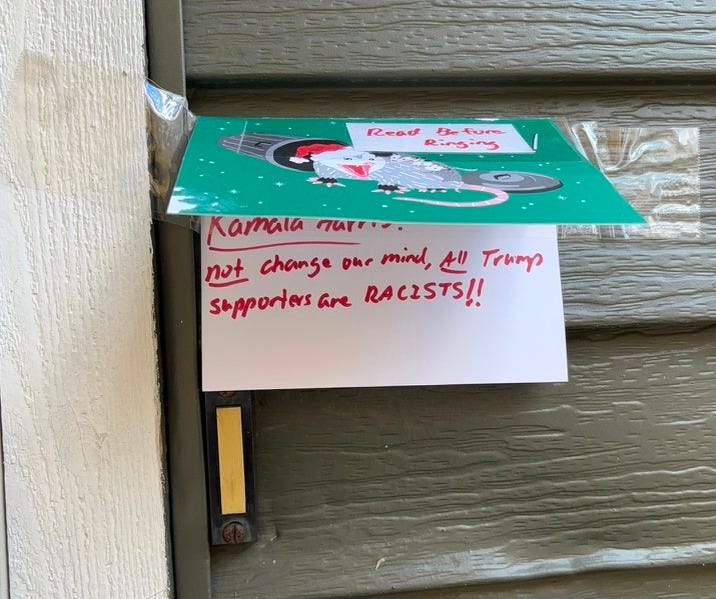 Read Before
Ringing
Kamala Harris.
not change our mind, All Trump
supporters are RACISTS!!